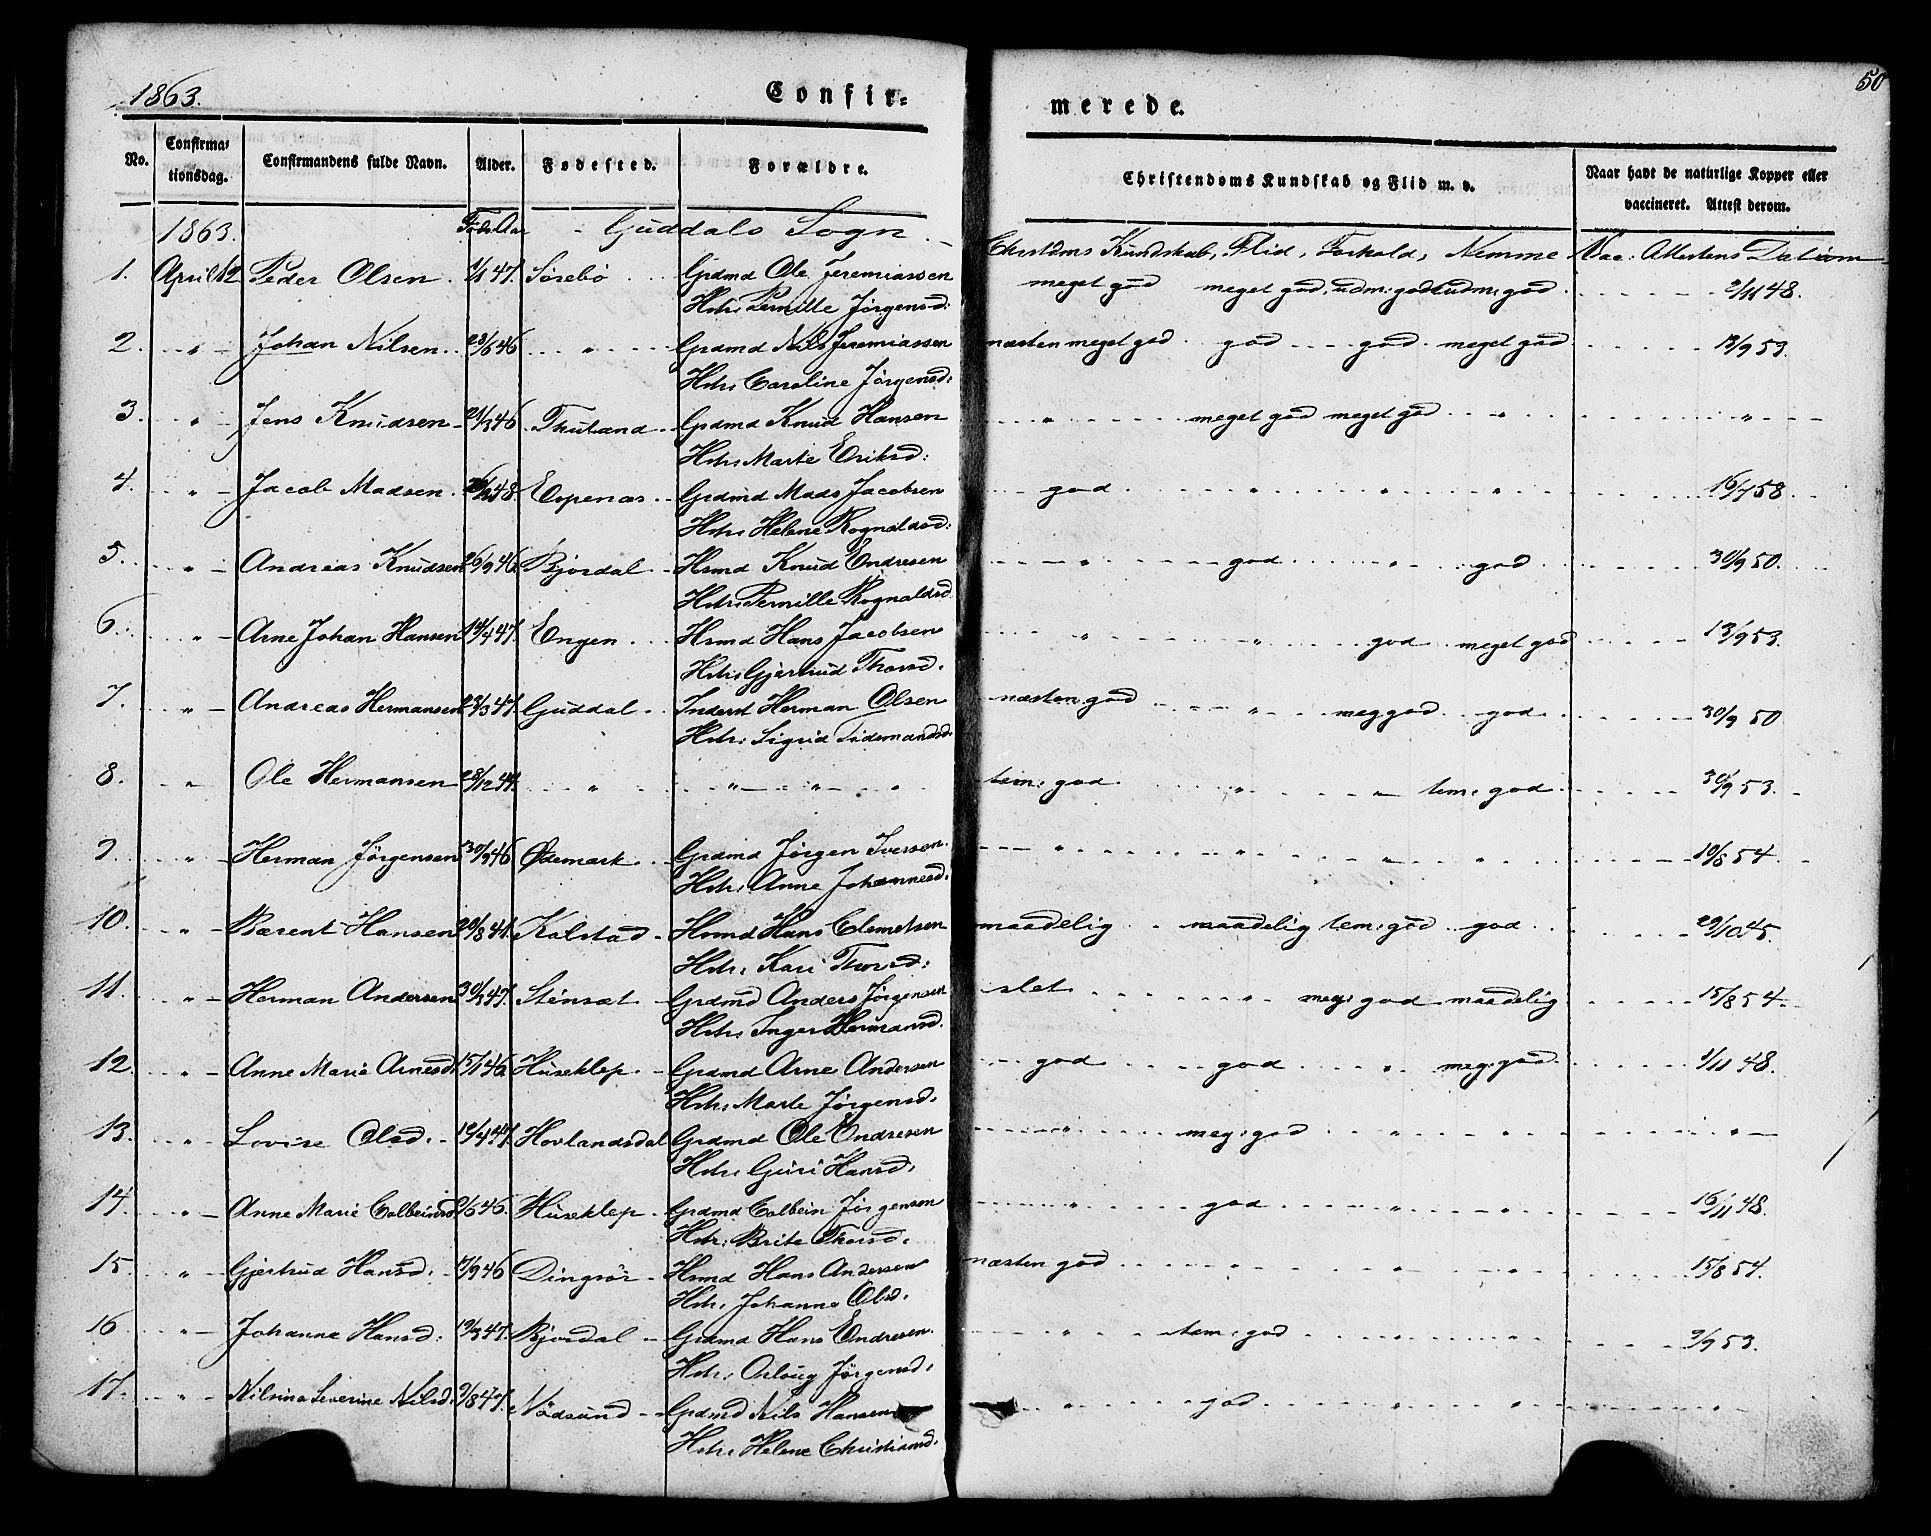 1863. Confir= merede. 50
No. Confirma= tionsdag. Confirmandens fulde Navn. Alder. Fødested. Forældre. Christendoms Kundskab og Flid m. v. Naar havt de naturlige Kopper eller vaccineret. Attest derom.
1863. Føds. Aar - Guddals Sogn. - Christdms Kundskab, Flid, Forhold, Nemme Vac: Attestens Datum
1. April 12 Peder Olsen. 1/1 47. Sørebø Grdmd Ole Jeremiassen meget god meget god, udm: god udm: god 2/11 48.
Hstr: Pernille Jørgensd:
2. " Johan Nilsen. 28/6 46 " Grdmd Nils Jeremiassen næsten meget god god god meget god 13/9 53.
Hstr: Caroline Jørgensd:
3. " Jens Knudsen 21/3 46 Thuland Grdmd Knud Hansen " meget god meget god " "
Hstr: Marte Eriksd:
4. " Jacob Madsen. 48 Espenæs Grdmd Mads Jacobsen god " " " 16/7 58
Hstr: Helene Rognaldsd:
5. " Andreas Knudsen 26/9 46. Bjordal Hsmd Knud Endresen " god " god 30/9 50.
Hstr: Pernille Rognaldsd.
6. " Arne Johan Hansen 14/4 47. Engen Hsmd Hans Jacobsen " " god meget god 13/9 53.
Hstr: Gjertrud Thorsd.
7. " Andreas Hermansen 23/3 47. Guddal Inderst Herman Olsen næsten god " meg god god 30/9 50
Hstr: Sigrid Tidemandsd:
8. " Ole Hermansen 28/12 44. " " " " tem: god " " tem: god 30/9 53.
9. " Herman Jørgensen 30/9 46 Ødemark Grdmd Jørgen Iversen. " " " " 10/8 54.
Hstr: Anne Johannesd.
10. " Bærent Hansen 20/8 44. Kalstad Hsmd Hans Clemetsen maadelig maadelig tem: god god 29/10 45.
Hstr. Kari Thorsd:
11. " Herman Andersen 47. Stensæt Grdmd Anders Jørgensen slet " meg: god maadelig 15/8 54.
Hstr: Inger Hermansd.
12. " Anne Marie Arnesd: 15/1 46. Huseklep Grdmd Arne Andersen god god " meg: god 1/11 48.
Hstr: Marte Jørgensd.
13. " Lovise Olsd. 10/4 47. Hovlandsdal Grdmd Ole Endresen " meg: god " " "
Hstr: Guri Hansd.
14. " Anne Marie Colbeinsd. 2/6 46. Huseklep Grdmd Colbein Jørgensen " god " " 16/11 48.
Hstr: Brite Thorsd.
15. " Gjertrud Hansd. 7/9 46 Dingsør Hsmd Hans Andersen næsten god " " " 15/8 54.
Hstr. Johanne Olsd.
16 " Johanne Hansd. 19/3 47. Bjordal Grdmd Hans Endresen. " tem: god " " 9/9 53.
Hstr: Jørgensd.
17. " Nilsina Severine Nilsd. 9/8 47. Nødsund Grdmd Nils Hansen " god " " "
Hstr: Helene Christiansd.